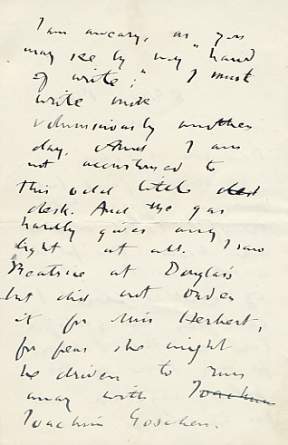 I am aweary, as you
may see by my "hand
of write;" I must
write more
voluminously another
day. And I am
not accustomed to
this odd little desk
desk. And the gas
hardly gives any
light at all. I saw
Beatrice at Douglas's
but did not order
it for Miss Herbert,
for fear she might
be driven to run
away with Joachim
Joachim Goschen.